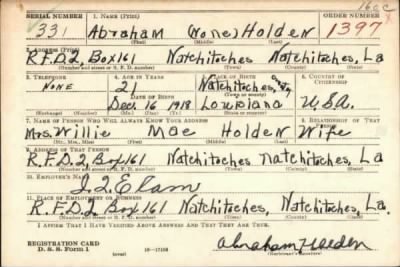 160C
SERIAL NUMBER 1. NAME (Print) ORDER NUMBER
331 Abraham (None) Holden 1397
(First) (Middle) (Last)
2. ADDRESS (Print)
R.F.D.2, Box 161 Natchitoches Natchitoches, La
(Number and street or R. F. D. number) (Town) (County) (State)
3. TELEPHONE 4. AGE IN YEARS 5. PLACE OF BIRTH 6. COUNTRY OF CITIZENSHIP
None 21 Natchitoches,
DATE OF BIRTH (Town or county)
Dec 16 1918 Louisiana U.S.A.
(Exchange) (Number) (Mo.) (Day) (Yr.) (State or country)
7. NAME OF PERSON WHO WILL ALWAYS KNOW YOUR ADDRESS 8. RELATIONSHIP OF THAT PERSON
Mrs. Willie Mae Holden Wife
(Mr., Mrs., Miss) (First) (Middle) (Last)
9. ADDRESS OF THAT PERSON
R.F.D.2, Box 161 Natchitoches Natchitoches, La
(Number and street or R. F. D. number) (Town) (County) (State)
10. EMPLOYER'S NAME
Elam
11. PLACE OF EMPLOYMENT OR BUSINESS
R.F.D.2, Box 161 Natchitoches, Natchitoches, La.
(Number and street or R. F. D. number) (Town) (County) (State)
I AFFIRM THAT I HAVE VERIFIED ABOVE ANSWERS AND THAT THEY ARE TRUE.
REGISTRATION CARD
D. S. S. Form 1 (over) 16-17105 Abraham Holden
(Registrant's signature)